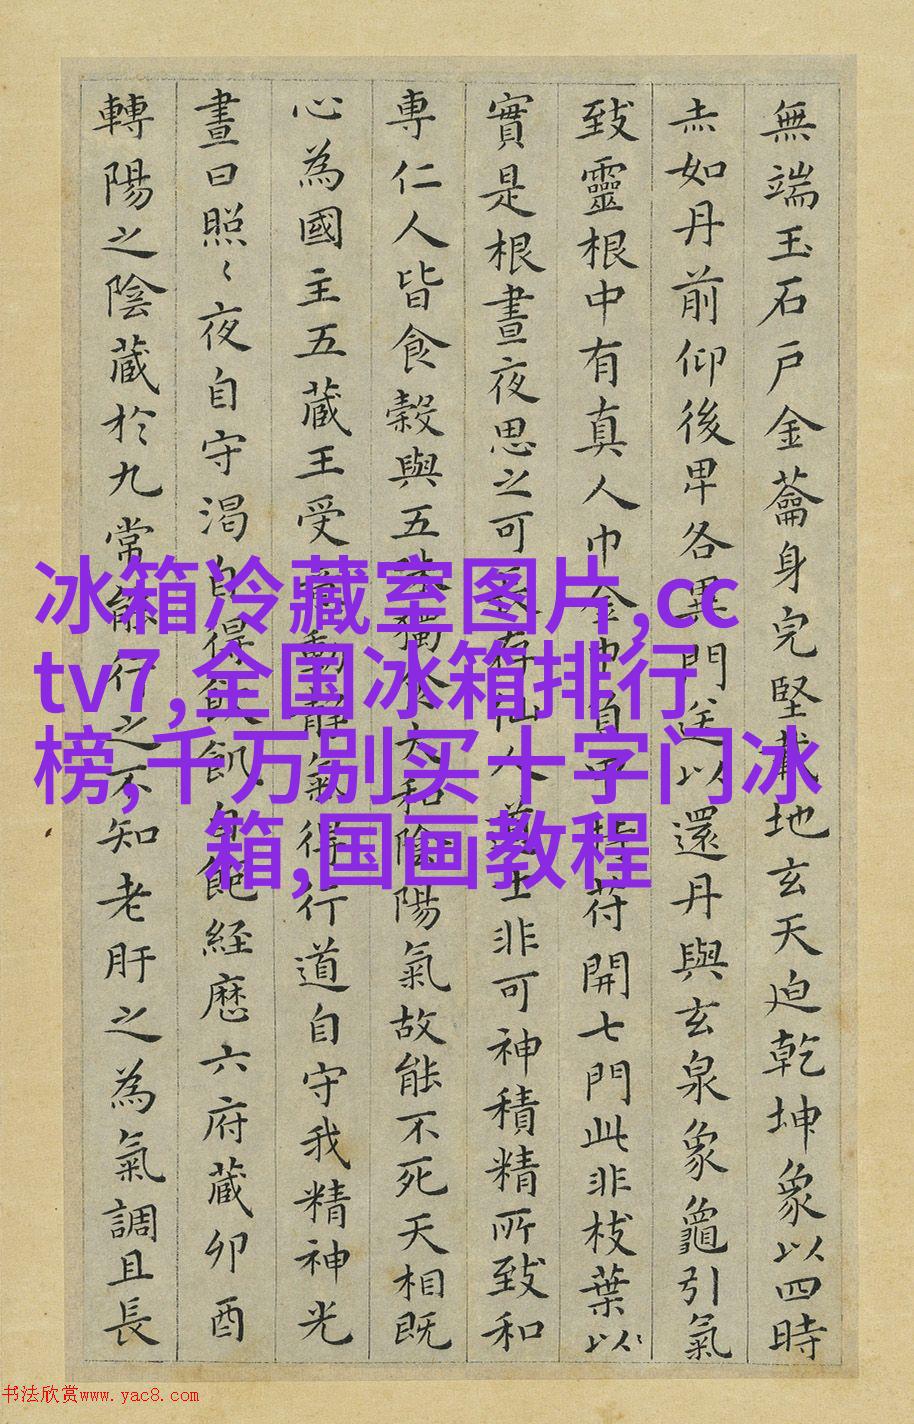 無端玉石戶金蘥身完堅載地玄天迫乾坤象以四時
赤如丹前仰後卑各異門送以還丹與玄泉象龜引氣
致靈根中有真人巾金巾負甲持符開七門此非枝葉以
實是根晝夜思之可長存仙人道士非可神積精所致和
專仁人皆食穀與五味獨食太和陰陽氣故能不死天相既
心為國主五藏王受意動靜氣得行道自守我精神光
晝日照〻夜自守渴自得飲飢自飽経歷六府藏卯酉
轉陽之陰藏於九常能行之不知老肝之為氣調且長
冰箱冷藏室图片,cc
tv7,全国冰箱排行
榜,千万别买十字门冰
箱,国画教程
书法欣赏www.yac8.com